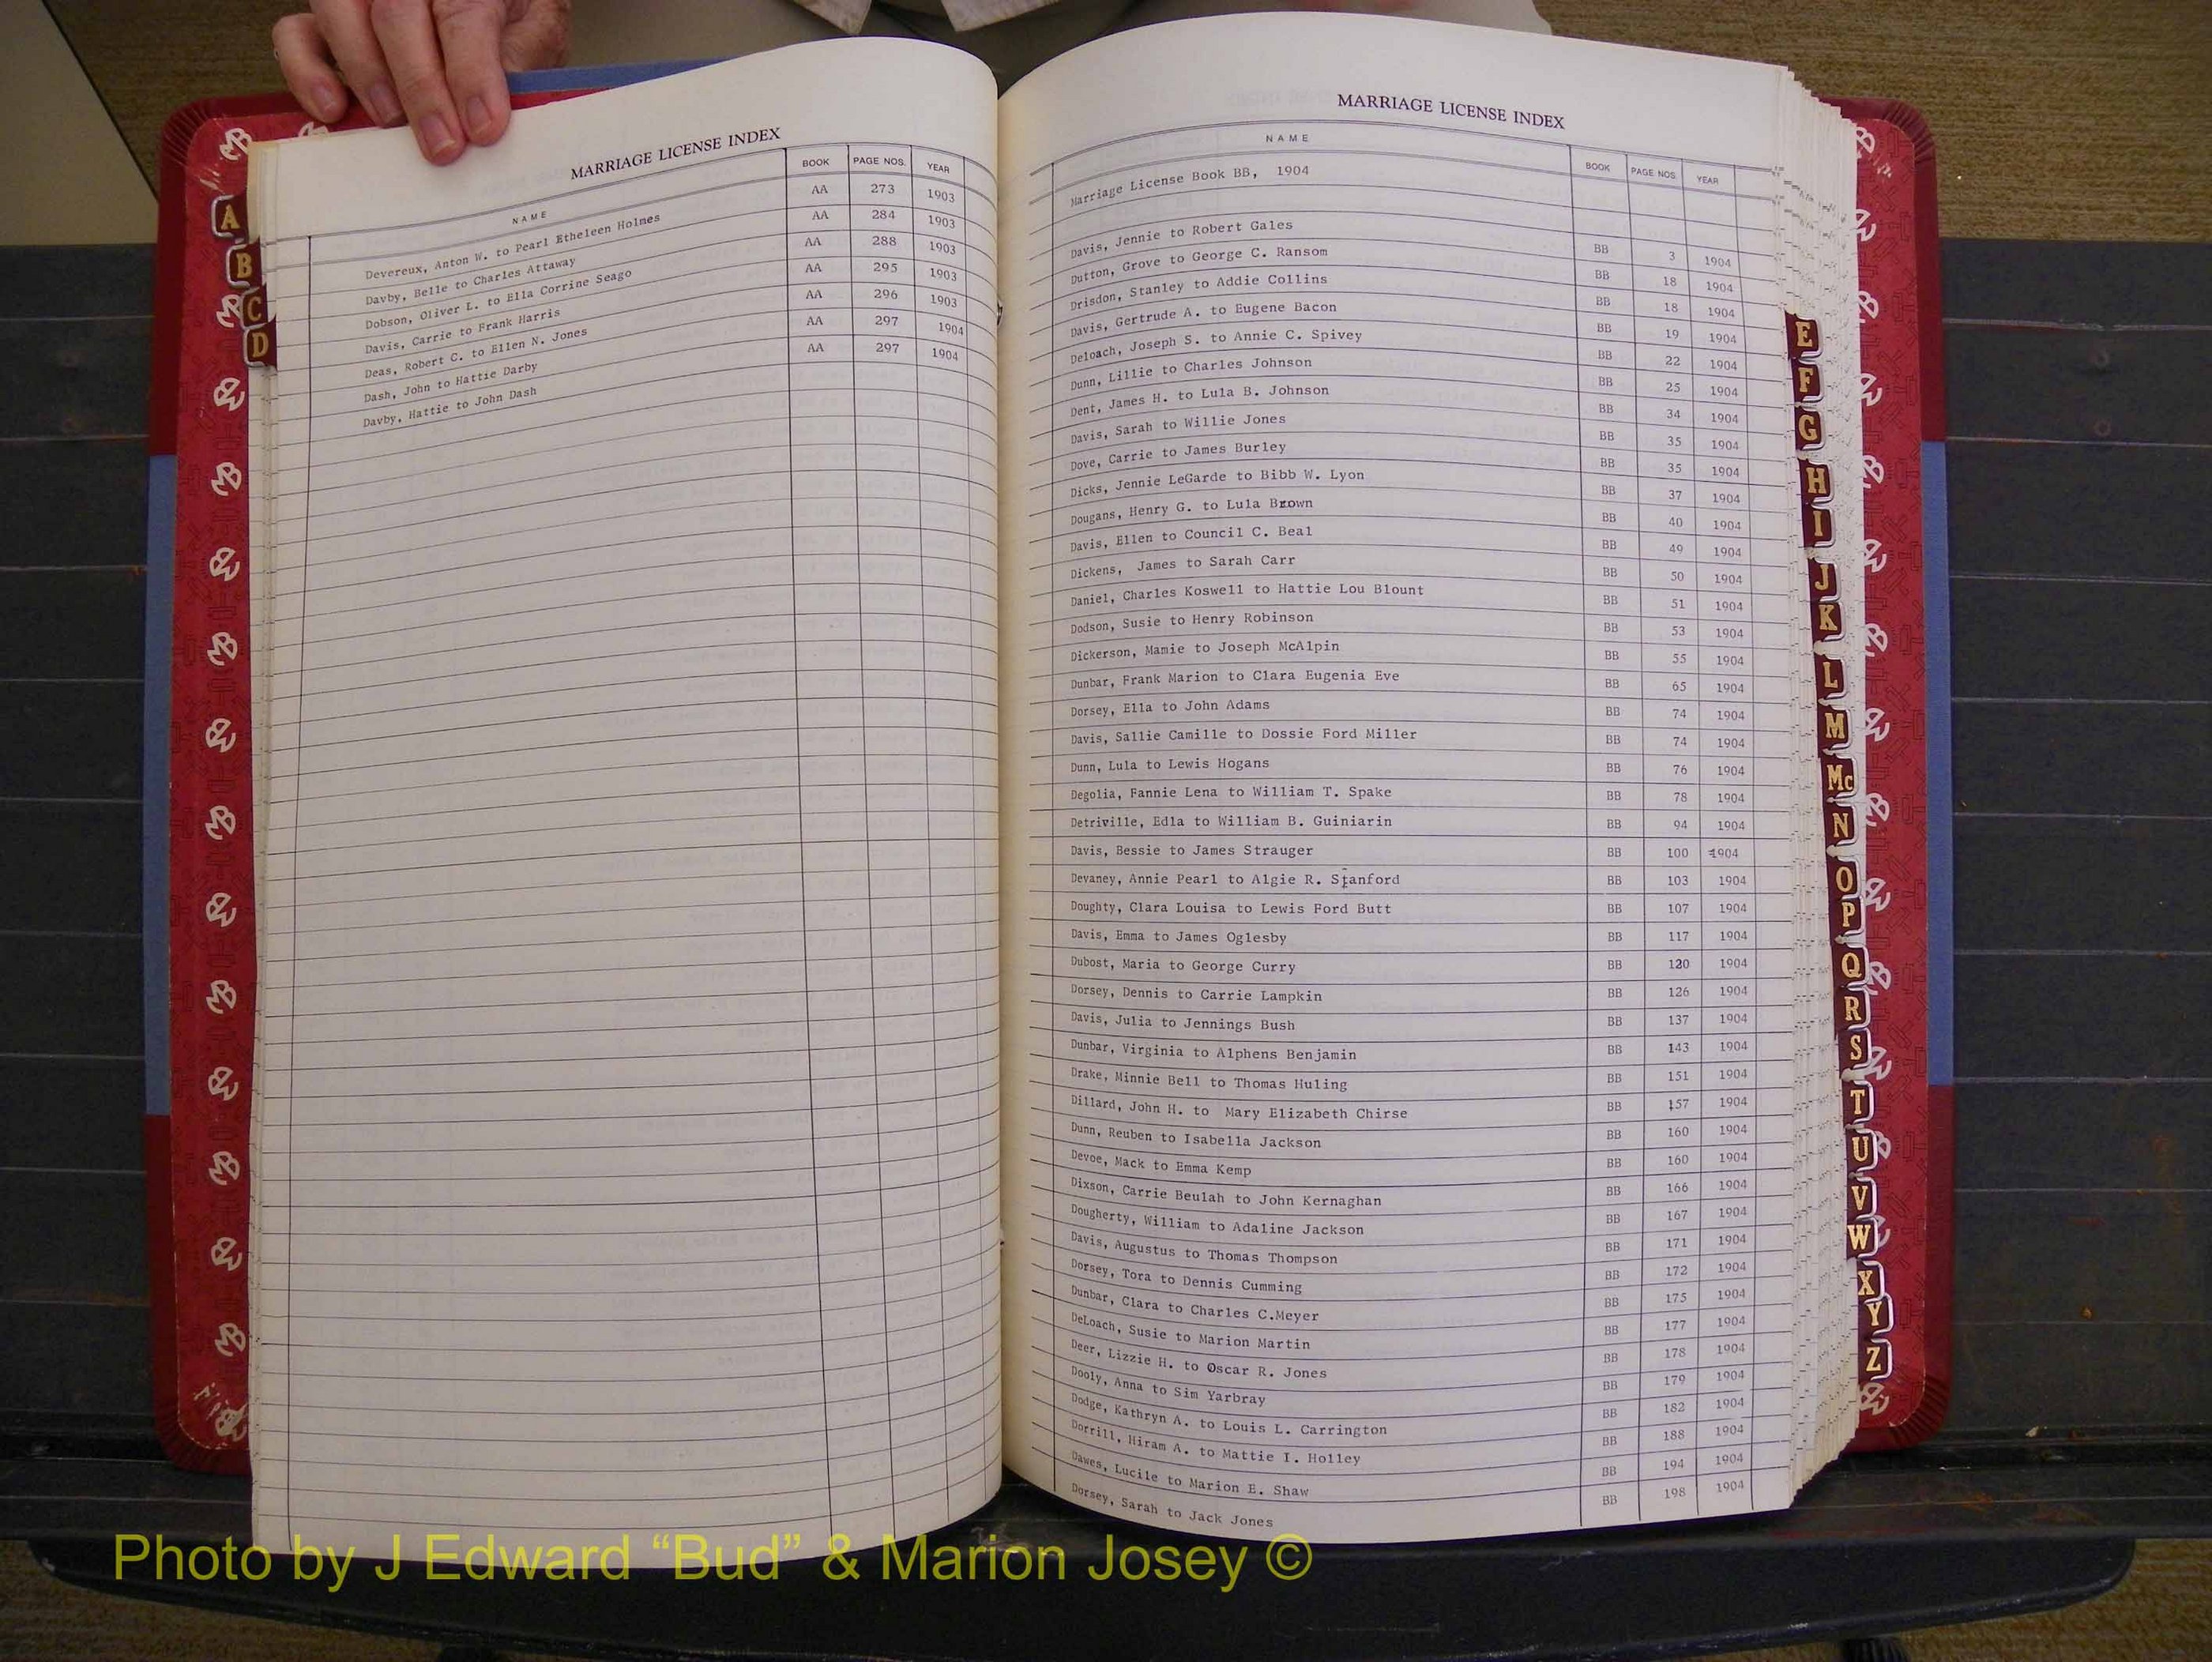 MARRIAGE LICENSE INDEX
NAME BOOK PAGE NOS. YEAR
Devereux, Anton W. to Pearl Etheleen Holmes AA 273 1903
Davby, Belle to Charles Attaway AA 284 1903
Dobson, Oliver L. to Ella Corrine Seago AA 288 1903
Davis, Carrie to Frank Harris AA 295 1903
Deas, Robert C. to Ellen N. Jones AA 296 1903
Dash, John to Hattie Darby AA 297 1904
Davby, Hattie to John Dash AA 297 1904
A
B
C
D
MARRIAGE LICENSE INDEX
NAME BOOK PAGE NOS. YEAR
Marriage License Book BB, 1904
Davis, Jennie to Robert Gales BB 3 1904
Dutton, Grove to George C. Ransom BB 18 1904
Drisdon, Stanley to Addie Collins BB 18 1904
Davis, Gertrude A. to Eugene Bacon BB 19 1904
Deloach, Joseph S. to Annie C. Spivey BB 22 1904
Dunn, Lillie to Charles Johnson BB 25 1904
Dent, James H. to Lula B. Johnson BB 34 1904
Davis, Sarah to Willie Jones BB 35 1904
Dove, Carrie to James Burley BB 35 1904
Dicks, Jennie LeGarde to Bibb W. Lyon BB 37 1904
Dougans, Henry G. to Lula Brown BB 40 1904
Davis, Ellen to Council C. Beal BB 49 1904
Dickens, James to Sarah Carr BB 50 1904
Daniel, Charles Koswell to Hattie Lou Blount BB 51 1904
Dodson, Susie to Henry Robinson BB 53 1904
Dickerson, Mamie to Joseph McAlpin BB 55 1904
Dunbar, Frank Marion to Clara Eugenia Eve BB 65 1904
Dorsey, Ella to John Adams BB 74 1904
Davis, Sallie Camille to Dossie Ford Miller BB 74 1904
Dunn, Lula to Lewis Hogans BB 76 1904
Degolia, Fannie Lena to William T. Spake BB 78 1904
Detriville, Edla to William B. Guiniarin BB 94 1904
Davis, Bessie to James Strauger BB 100 1904
Devaney, Annie Pearl to Algie R. Stanford BB 103 1904
Doughty, Clara Louisa to Lewis Ford Butt BB 107 1904
Davis, Emma to James Oglesby BB 117 1904
Dubost, Maria to George Curry BB 120 1904
Dorsey, Dennis to Carrie Lampkin BB 126 1904
Davis, Julia to Jennings Bush BB 137 1904
Dunbar, Virginia to Alphens Benjamin BB 143 1904
Drake, Minnie Bell to Thomas Huling BB 151 1904
Dillard, John H. to Mary Elizabeth Chirse BB 157 1904
Dunn, Reuben to Isabella Jackson BB 160 1904
Devoe, Mack to Emma Kemp BB 160 1904
Dixson, Carrie Beulah to John Kernaghan BB 166 1904
Dougherty, William to Adaline Jackson BB 167 1904
Davis, Augustus to Thomas Thompson BB 171 1904
Dorsey, Tora to Dennis Cumming BB 172 1904
Dunbar, Clara to Charles C.Meyer BB 175 1904
DeLoach, Susie to Marion Martin BB 177 1904
Deer, Lizzie H. to Oscar R. Jones BB 178 1904
Dooly, Anna to Sim Yarbray BB 179 1904
Dodge, Kathryn A. to Louis L. Carrington BB 182 1904
Dorrill, Hiram A. to Mattie I. Holley BB 188 1904
Dawes, Lucile to Marion E. Shaw BB 194 1904
Dorsey, Sarah to Jack Jones BB 198 1904
E
F
G
H
I
J
K
L
M
Mc
N
O
P
Q
R
S
T
U
V
W
X
Y
Z
Photo by J Edward “Bud” & Marion Josey ©